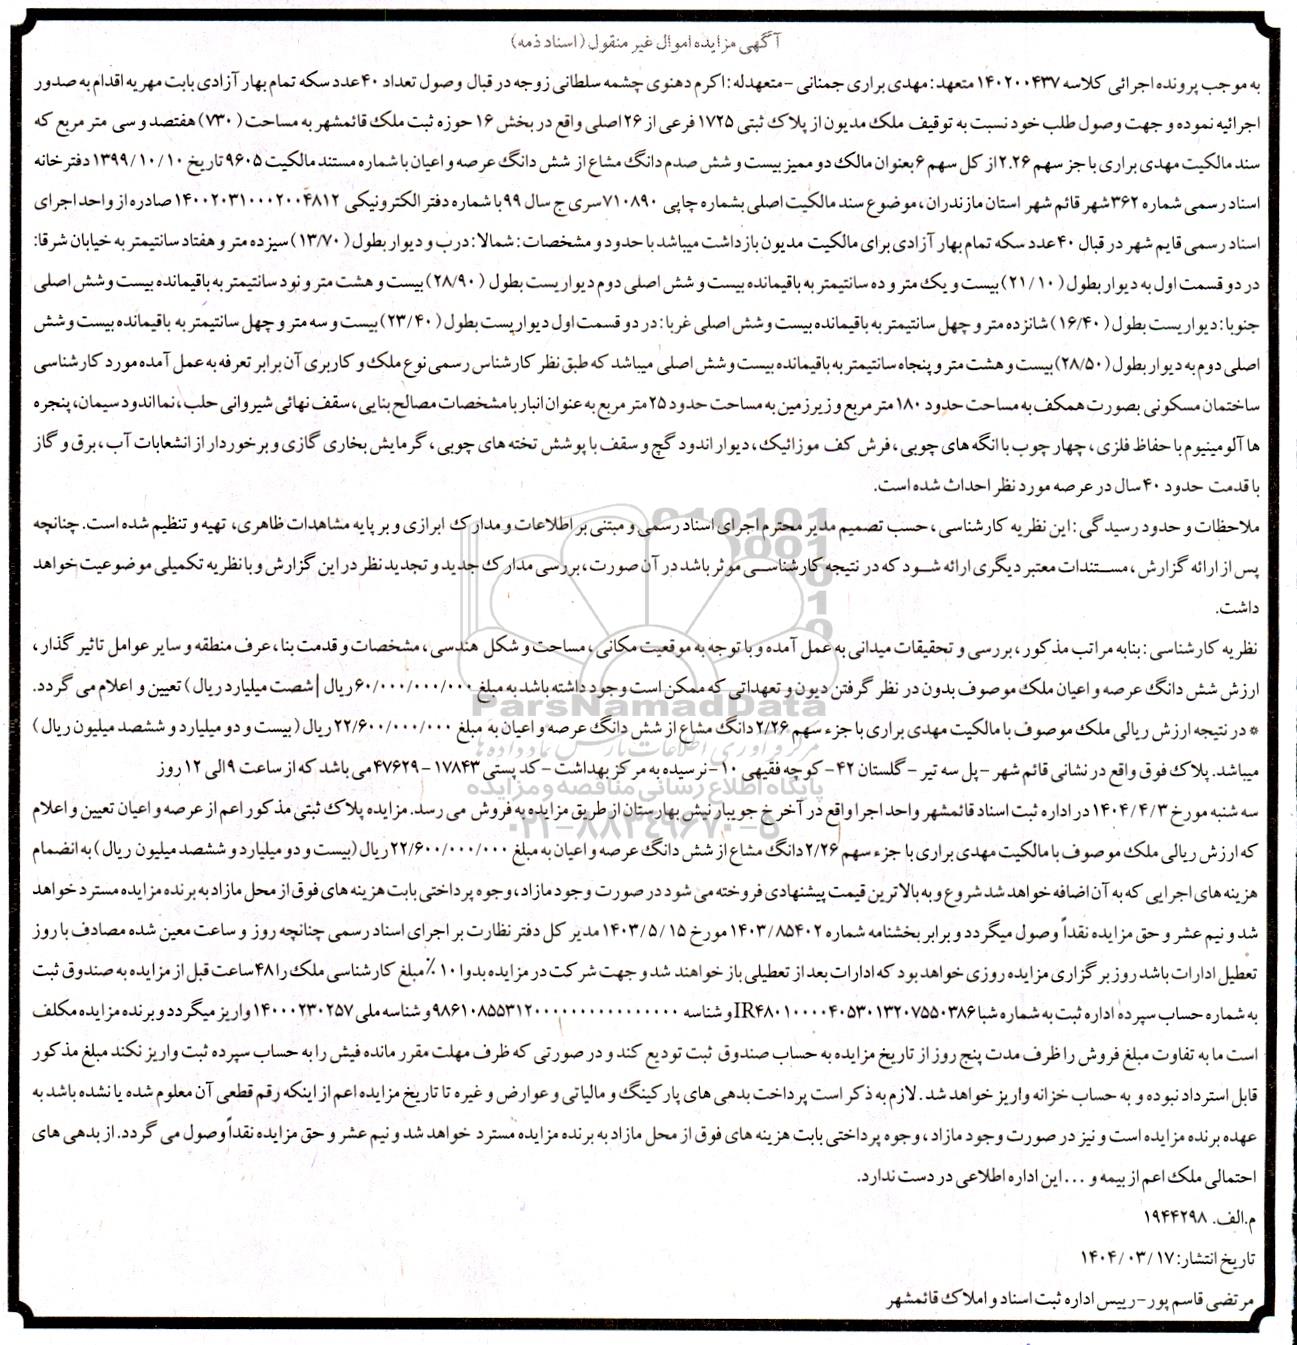 آگهی مزایده اموال غیر منقول (اسناد ذمه)
به موجب پرونده اجرائی کلاسه ۱۴۰۲۰۰۴۳۷ متعهد: مهدی براری جمنانی -متعهدله: اکرم دهنوی چشمه سلطانی زوجه در قبال وصول تعداد ۴۰عدد سکه تمام بهار آزادی بابت مهریه اقدام به صدور
اجرائیه نموده و جهت وصول طلب خود نسبت به توقیف ملک مدیون از پلاک ثبتی ۱۷۲۵ فرعی از ۲۶ اصلی واقع در بخش ۱۶ حوزه ثبت ملک قائمشهر به مساحت (۷۳۰) هفتصد و سی متر مربع که
سند مالکیت مهدی براری با جز سهم ۲.۲۶از کل سهم ۶ بعنوان مالک دو ممیز بیست و شش صدم دانگ مشاع از شش دانگ عرصه و اعیان با شماره مستند مالکیت ۹۶۰۵ تاریخ ۱۳۹۹/۱۰/۱۰ دفترخانه
اسناد رسمی شماره ۳۶۲شهر قائم شهر استان مازندران، موضوع سند مالکیت اصلی بشماره چاپی ۷۱۰۸۹۰سری ج سال ۹۹ با شماره دفتر الکترونیکی ۱۴۰۰۲۰۳۱۰۰۰۲۰۰۴۸۱۲ صادره از واحد اجرای
اسناد رسمی قایم شهر در قبال ۴۰عدد سکه تمام بهار آزادی برای مالکیت مدیون بازداشت میباشد با حدود و مشخصات: شمالا: درب و دیوار بطول (۱۳/۷۰) سیزده متر و هفتاد سانتیمتر به خیابان شرقا:
در دو قسمت اول به دیوار بطول (۲۱/۱۰) بیست و یک متر و ده سانتیمتر به باقیمانده بیست و شش اصلی دوم دیواریست بطول (۲۸/۹۰) بیست و هشت متر و نود سانتیمتر به باقیمانده بیست و شش اصلی
جنوبا: دیواریست بطول (۱۶/۴۰) شانزده متر و چهل سانتیمتر به باقیمانده بیست وشش اصلی غربا: در دو قسمت اول دیواریست بطول (۲۳/۴۰) بیست و سه متر و چهل سانتیمتر به باقیمانده بیست وشش
اصلی دوم به دیوار بطول (۲۸/۵۰) بیست و هشت متر و پنجاه سانتیمتر به باقیمانده بیست وشش اصلی میباشد که طبق نظر کارشناس رسمی نوع ملک و کاربری آن برابر تعرفه به عمل آمده مورد کارشناسی
ساختمان مسکونی بصورت همکف به مساحت حدود ۱۸۰ متر مربع و زیرزمین به مساحت حدود ۲۵ متر مربع به عنوان انبار با مشخصات مصالح بنایی، سقف نهائی شیروانی حلب، نما اندود سیمان، پنجره
ها آلومینیوم با حفاظ فلزی، چهار چوب با انگه های چوبی، فرش کف موزائیک، دیوار اندود گچ و سقف با پوشش تخته های چوبی، گرمایش بخاری گازی و برخوردار از انشعابات آب، برق و گاز
با قدمت حدود ۴۰ سال در عرصه مورد نظر احداث شده است.
ملاحظات و حدود رسیدگی: این نظریه کارشناسی، حسب تصمیم مدیر محترم اجرای اسناد رسمی و مبتنی بر اطلاعات و مدارک ابرازی و بر پایه مشاهدات ظاهری، تهیه و تنظیم شده است. چنانچه
پس از ارائه گزارش، مستندات معتبر دیگری ارائه شود که در نتیجه کارشناسی موثر باشد در آن صورت، بررسی مدارک جدید و تجدید نظر در این گزارش و با نظریه تکمیلی موضوعیت خواهد
داشت.
نظریه کارشناسی: بنابه مراتب مذکور، بررسی و تحقیقات میدانی به عمل آمده و با توجه به موقعیت مکانی، مساحت و شکل هندسی، مشخصات و قدمت بنا، عرف منطقه و سایر عوامل تاثیر گذار،
ارزش شش دانگ عرصه و اعیان ملک موصوف بدون در نظر گرفتن دیون و تعهداتی که ممکن است وجود داشته باشد به مبلغ ۶۰/۰۰۰/۰۰۰/۰۰۰ ریال | شصت میلیارد ریال) تعیین و اعلام می گردد.
* در نتیجه ارزش ریالی ملک موصوف با مالکیت مهدی براری با جزء سهم ۲/۲۶دانگ مشاع از شش دانگ عرصه و اعیان به مبلغ ۲۲/۶۰۰/۰۰۰/۰۰۰ ریال (بیست و دو میلیارد و ششصد میلیون ریال)
میباشد. پلاک فوق واقع در نشانی قائم شهر -پل سه تیر -گلستان ۴۲- کوچه فقیهی ۱۰-نرسیده به مرکز بهداشت - کد پستی ۱۷۸۴۳-۴۷۶۲۹ می باشد که از ساعت ۹الی ۱۲ روز
سه شنبه مورخ ۱۴۰۴/۴/۳ در اداره ثبت اسناد قائمشهر واحد اجرا واقع در آخر خ جویبار نبش بهارستان از طریق مزایده به فروش می رسد. مزایده پلاک ثبتی مذکور اعم از عرصه و اعیان تعیین و اعلام
که ارزش ریالی ملک موصوف با مالکیت مهدی براری با جزء سهم ۲/۲۶دانگ مشاع از شش دانگ عرصه و اعیان به مبلغ ۲۲/۶۰۰/۰۰۰/۰۰۰ ریال (بیست و دو میلیارد و ششصد میلیون ریال) به انضمام
هزینه های اجرایی که به آن اضافه خواهد شد شروع و به بالاترین قیمت پیشنهادی فروخته می شود در صورت وجود مازاد، وجوه پرداختی بابت هزینه های فوق از محل مازاد به برنده مزایده مسترد خواهد
شد و نیم عشر و حق مزایده نقداً وصول میگردد و برابر بخشنامه شماره ۱۴۰۳/۸۵۴۰۲ مورخ ۱۴۰۳/۵/۱۵ مدیر کل دفتر نظارت بر اجرای اسناد رسمی چنانچه روز و ساعت معین شده مصادف با روز
تعطیل ادارات باشد روز برگزاری مزایده روزی خواهد بود که ادارات بعد از تعطیلی باز خواهند شد و جهت شرکت در مزایده بدوا ۱۰٪ مبلغ کارشناسی ملک را ۴۸ساعت قبل از مزایده به صندوق ثبت
به شماره حساب سپرده اداره ثبت به شماره شبا IR۴۸۰۱۰۰۰۰۴۰۵۳۰۱۳۲۰۷۵۵۰۳۸۶ و شناسه ۹۸۶۱۰۸۵۵۳۱۲۰۰۰۰۰۰۰۰۰۰۰۰۰۰۰۰۰ و شناسه ملی ۱۴۰۰۰۲۳۰۲۵۷ واریز میگردد و برنده مزایده مکلف
است ما به تفاوت مبلغ فروش را ظرف مدت پنج روز از تاریخ مزایده به حساب صندوق ثبت تودیع کند و در صورتی که ظرف مهلت مقرر مانده فیش را به حساب سپرده ثبت واریز نکند مبلغ مذکور
قابل استرداد نبوده و به حساب خزانه واریز خواهد شد. لازم به ذکر است پرداخت بدهی های پارکینگ و مالیاتی و عوارض و غیره تا تاریخ مزایده اعم از اینکه رقم قطعی آن معلوم شده یا نشده باشد به
عهده برنده مزایده است و نیز در صورت وجود مازاد، وجوه پرداختی بابت هزینه های فوق از محل مازاد به برنده مزایده مسترد خواهد شد و نیم عشر و حق مزایده نقداً وصول می گردد. از بدهی های
احتمالی ملک اعم از بیمه و ... این اداره اطلاعی در دست ندارد.
م.الف. ۱۹۴۴۲۹۸
تاریخ انتشار: ۱۴۰۴/۰۳/۱۷
مرتضی قاسم پور-رییس اداره ثبت اسناد و املاک قائمشهر
ParsNamadData
مرکز فرآوری اطلاعات پارس نماد داده ها
پایگاه اطلاع رسانی مناقصه و مزایده
۰۲۱-۸۸۳۴۹۶۷۰-۵